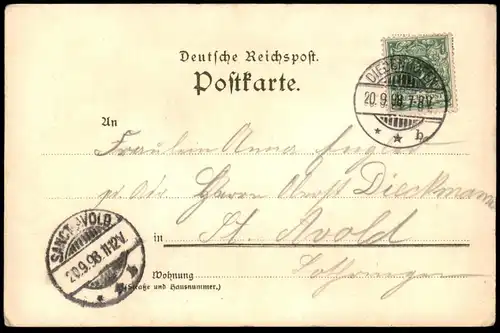 Deutsche Reichspost.
Postkarte.
20.9.98.7-8V.
* * b.
An
Fräulein Anna
Herrn Oberst Dieckmann
in St. Avold
SANCT AVOLD
20.9.98.11-12V.
* b
Lothringen
Wohnung
(Straße und Hausnummer.)